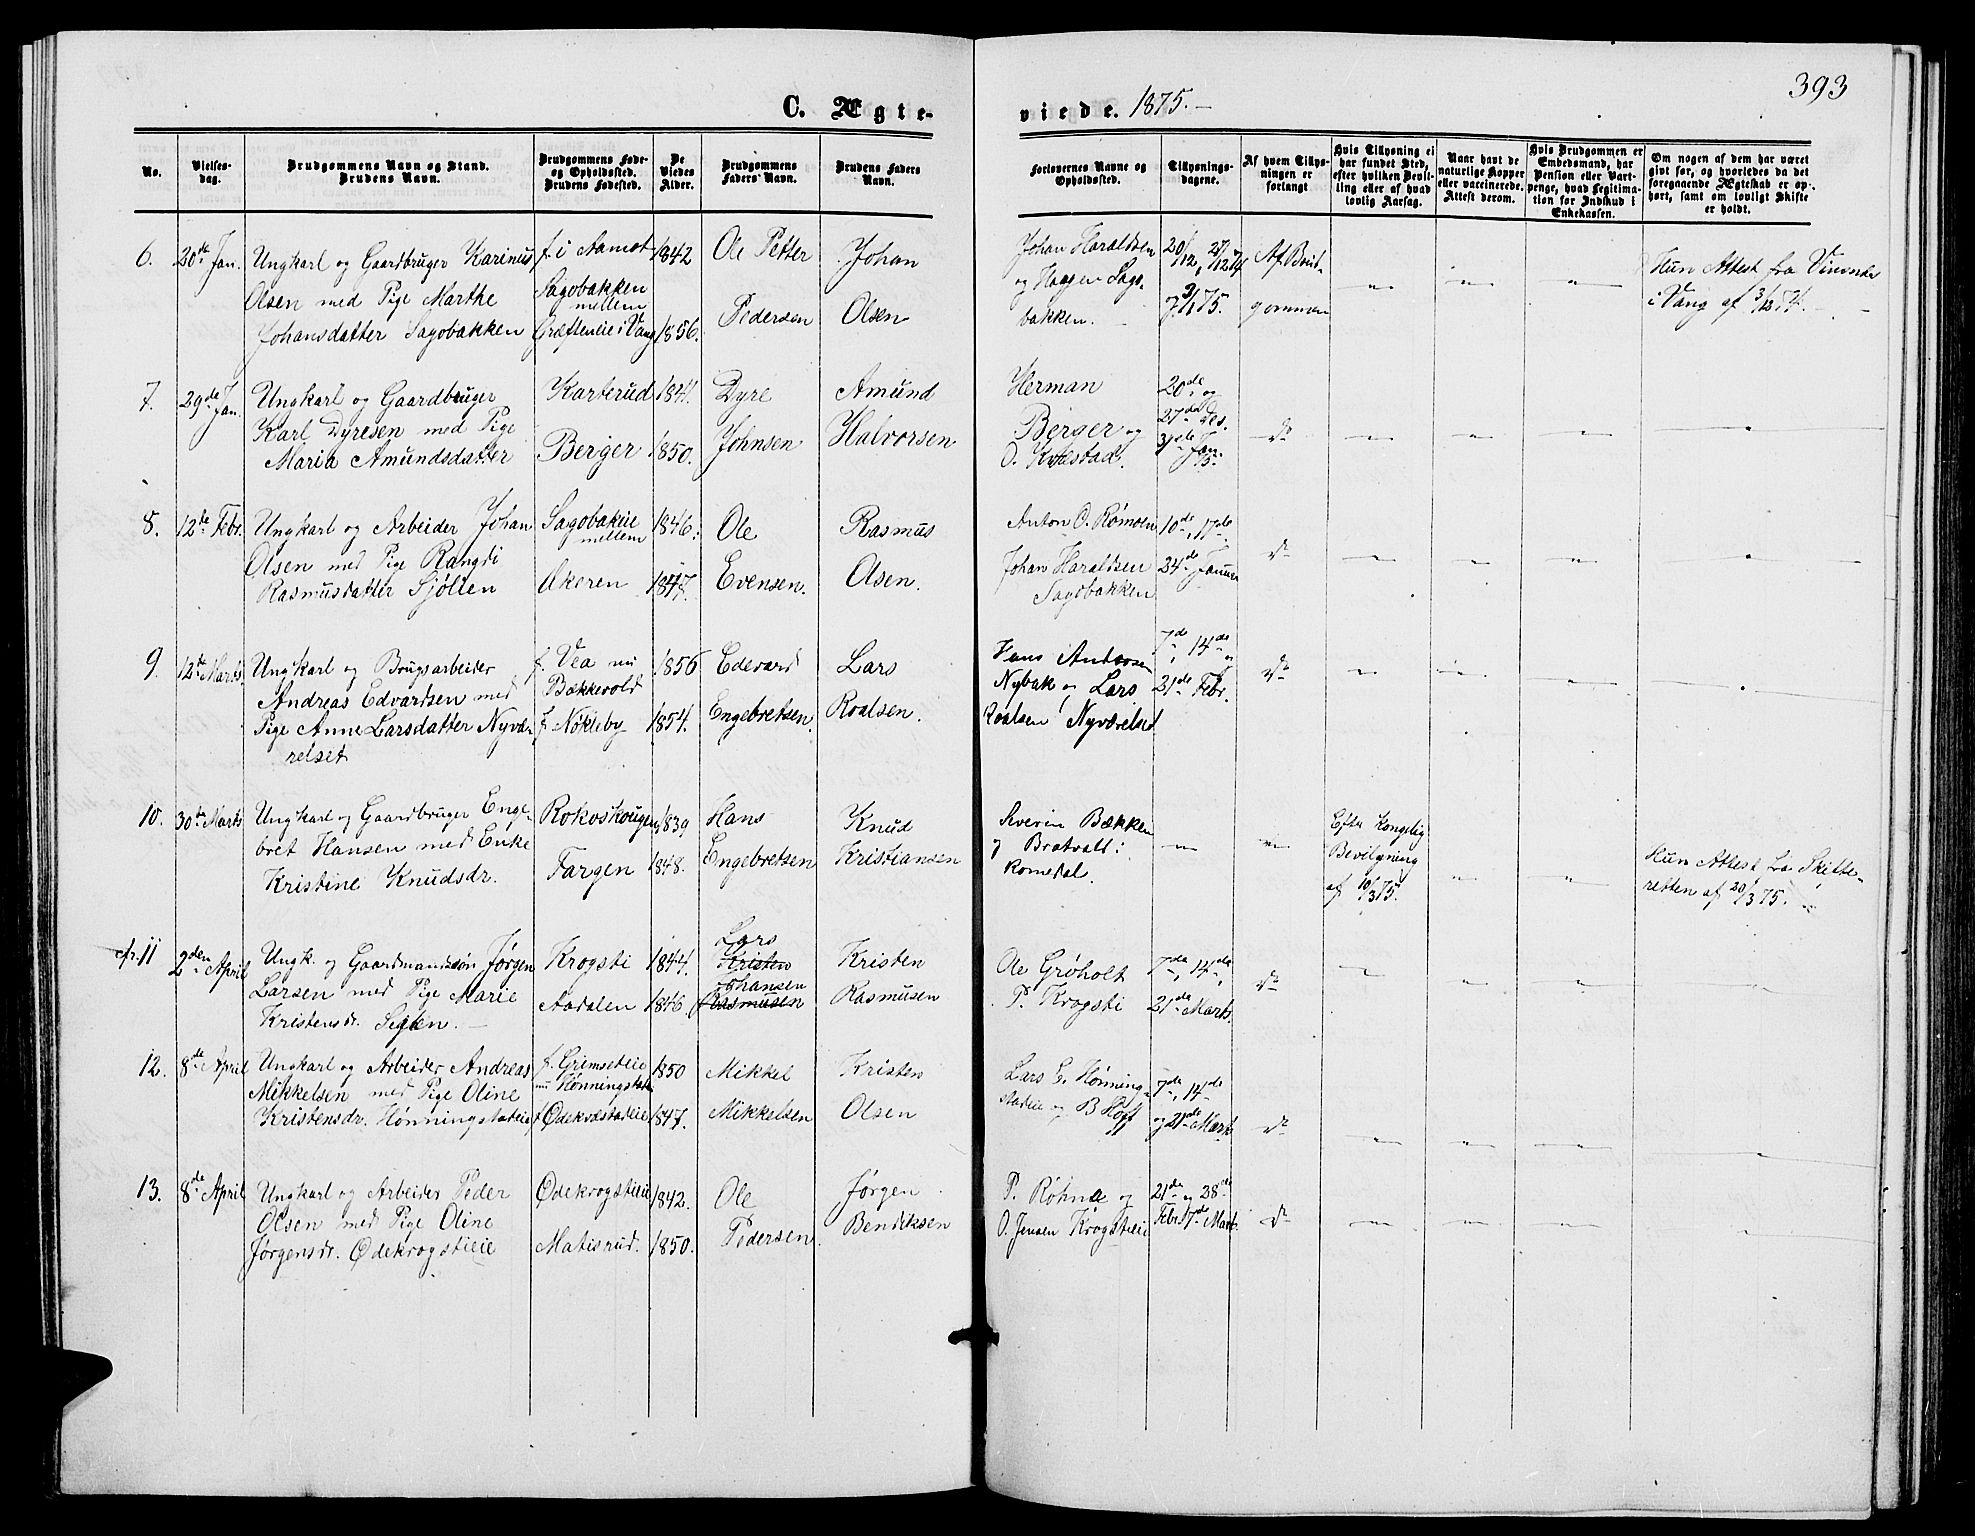 393
C. Ægte-
viede. 1875.-
No.
Vielses-
dag.
Brudgommens Navn og Stand.
Brudens Navn.
Brudgommens Føde-
og Opholdssted.
Brudens Fødested.
De
Viedes
Alder.
Brudgommens
Faders Navn.
Brudens Faders
Navn.
Forlovernes Navne og
Opholdssted.
Tillysnings-
dagene.
Af hvem Tillys-
ningen er
forlangt
Hvis Tillysning ei
har fundet Sted,
efter hvilken Bevil-
ling eller af hvad
lovlig Aarsag.
Naar havt de
naturlige Kopper
eller vaccinerede.
Attest derom.
Hvis Brudgommen er
Embedsmand, har
Pension eller Vart-
penge, hvad Legitima-
tion for Indskud i
Enkekassen.
Om nogen af dem har været
gift før, og hvorledes da det
foregaaende Ægteskab er op-
hørt, samt om lovligt Skifte
er holdt.
6. 20de Jan.
Ungkarl og Gaardbruger Karinus
Olsen med Pige Marthe
Johansdatter Sagobakken
f. i Aamot
Sagobakken
mellem
Græftenleie i Vang
1842
1856.
Ole Petter
Pedersen
Johan
Olsen
Johan Haraldsen
og Haagen Sags-
bakken.
20/12, 27/12 74
og 3/1 75.
Af Brud-
gommen
Hun Attest fra
i Vang af 3/12 74.
7. 29de Jan.
Ungkarl og Gaardbruger
Karl Dyresen med Pige
Maria Amundsdatter
Karterud
Berger
1841.
1850.
Dyre
Johnsen
Amund
Halvorsen
Herman
Berger og
O. Kvæstad.
20de og
27de Des.
3die Jan.
75.
Do
8. 12te Febr.
Ungkarl og Arbeider Johan
Olsen med Pige Rangdi
Rasmusdatter Sjølien
Sagobakeie
mellem
Økeren
1846.
1847.
Ole
Evensen.
Rasmus
Olsen.
Anton O. Rømoen
Johan Haraldsen
Sagobakken
10de, 17de
24de Januar
Do
9. 12te Marts.
Ungkarl og Brugsarbeider
Andreas Edvardsen med
Pige Anne Larsdatter Nyvæ-
relset
f. Vea nu
Bækkevold
f. Nökleby
1856
1854.
Edevard
Engebretsen.
Lars
Roalsen.
Hans
Nybak og Lars
Roalsen Nyværelset
7de, 14de og
21de Febr.
Do
10. 30te Marts
Ungkarl og Gaardbruger Enge-
bret Hansen med Enke
Kristine Knudsdr.
Rokoskougen
Fargen
1839
1848.
Hans
Engebretsen
Knud
Kristiansen
Severin Bækken
og Bratvold i
Romedal.
Efter Kongelig
Bevilgning
af 10/3 75.
Hun Attest fra Skifte-
retten af 20/3 75.
cfr. 11
2den April
Ungk. og Gaardmandssøn Jørgen
Larsen med Pige Marie
Kristensdr. Seglen.
Krogsti
Aadalen
1844.
1846.
Lars
Kristen
Johansen
Rasmusen
Kristen
Rasmusen
Ole Grøholt
P. Krogsti
7de, 14de,
21de Marts.
Do
12. 8de April
Ungkarl og Arbeider Andreas
Mikkelsen med Pige Oline
Kristensdr. Hønningstadeie
f. Grimseteie
nu Hønningstade
f. Ødekvæstadeie
1850
1847.
Mikkel
Mikkelsen
Kristen
Olsen
Lars E. Hønning-
stadeie og B. Hoff
7de, 14de
og 21de Marts.
Do
13. 8de April
Ungkarl og Arbeider Peder
Olsen med Pige Oline
Jørgensdr. Ødekrogstieie
Ødekrogstieie
Matisrud.
1842.
1850.
Ole
Pedersen.
Jørgen
Bendiksen
P. Røhne og
O. Jensen Krogstieie
21de og 28de
Febr 7de Mart.
Do